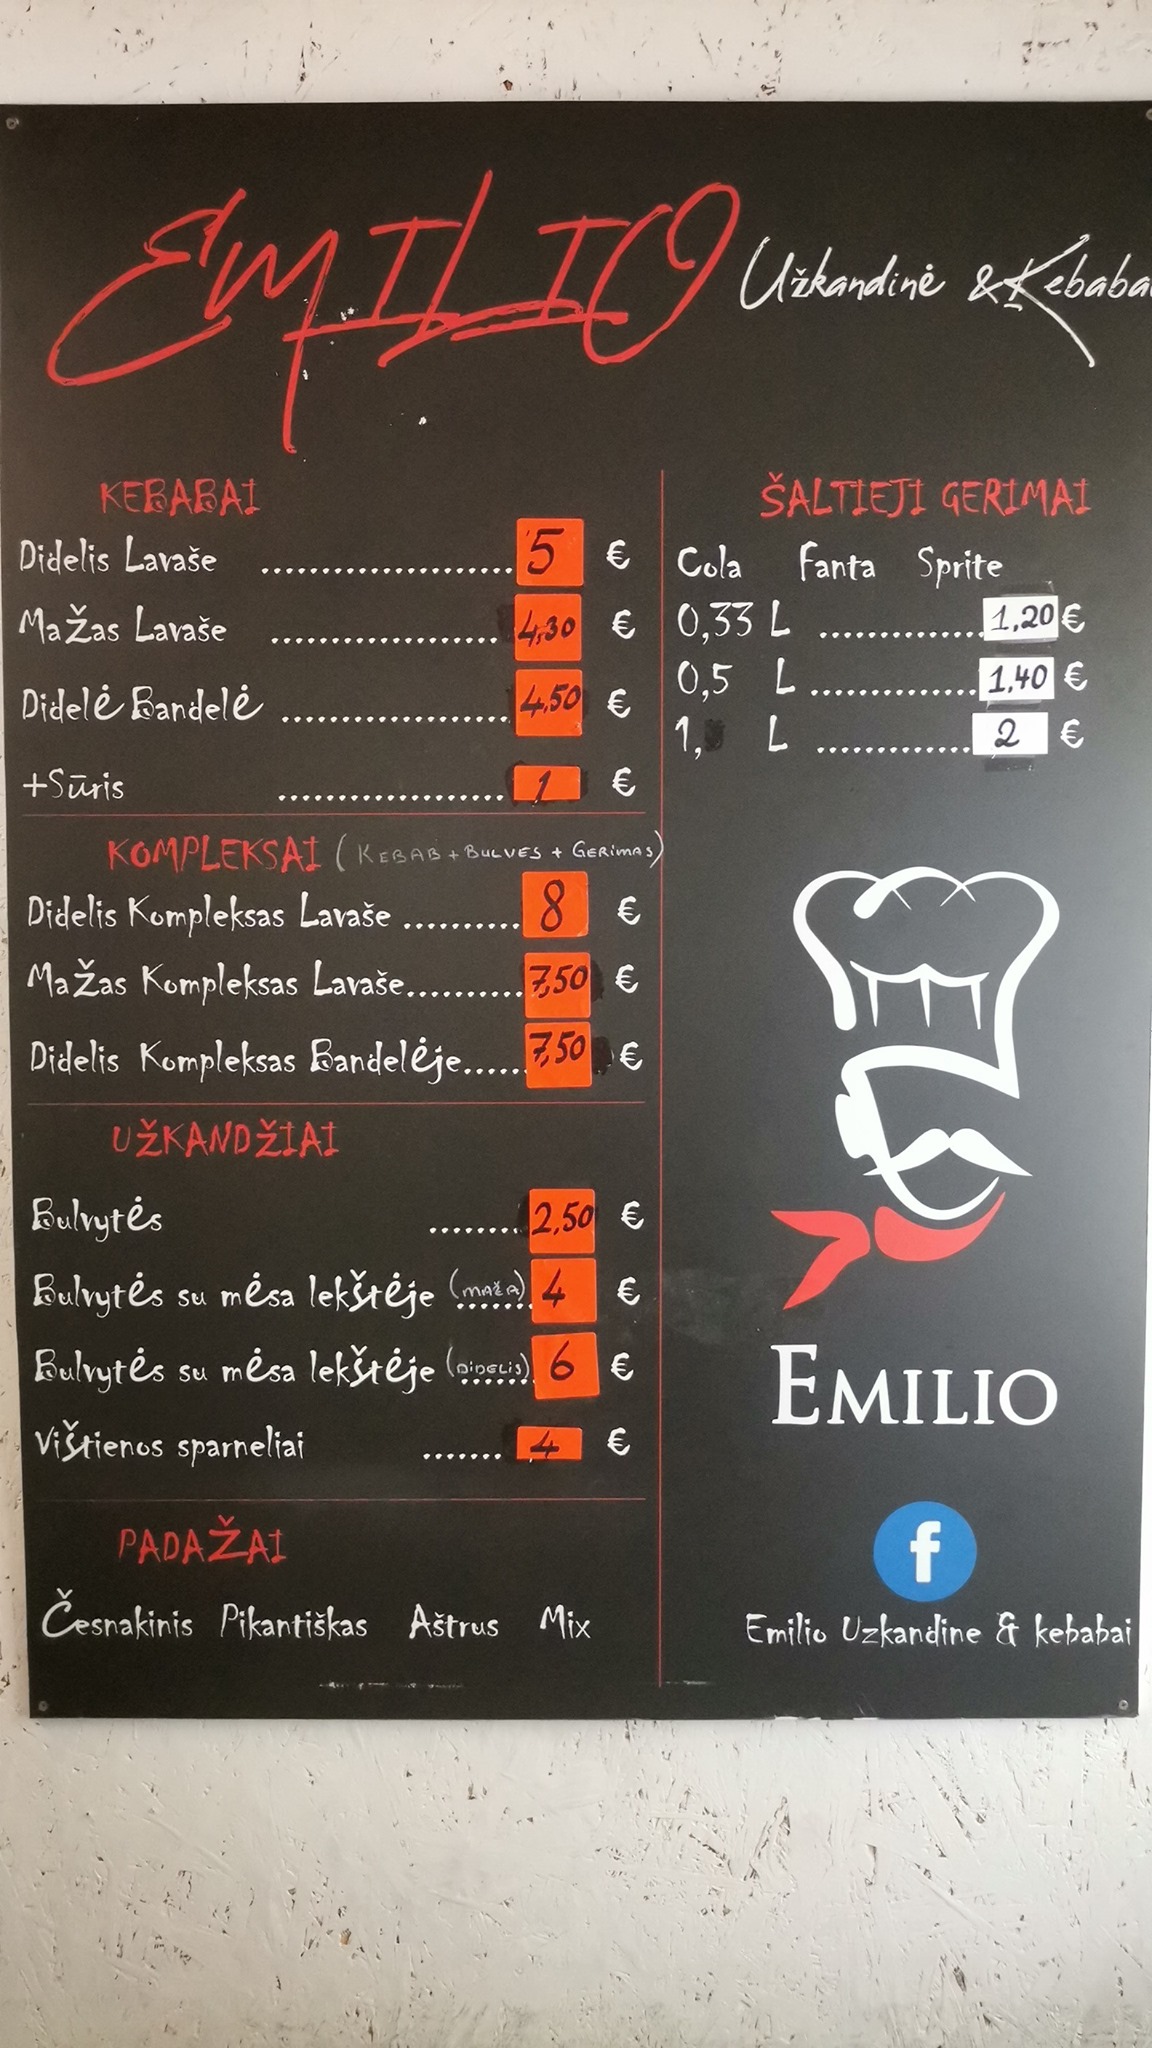 EMILIO Užkandinė & Kebabai
KEBABAI
Didelis Lavaše .................... 5 €
Mažas Lavaše .................. 4,30 €
Didelė Bandelė .................. 4,50 €
+Sūris .................. 1 €
KOMPLEKSAI (KEBAB + BULVES + GERIMAS)
Didelis Kompleksas Lavaše ......... 8 €
Mažas Kompleksas Lavaše......... 7,50 €
Didelis Kompleksas Bandelėje...... 7,50 €
UŽKANDŽIAI
Bulvytės ....... 2,50 €
Bulvytės su mėsa lekštėje (MAŽA) ....... 4 €
Bulvytės su mėsa lekštėje (DIDELIS) ....... 6 €
Vištienos sparneliai ....... 4 €
PADAŽAI
Česnakinis Pikantiškas Aštrus Mix
ŠALTIEJI GERIMAI
Cola Fanta Sprite
0,33 L ............. 1,20 €
0,5 L ............. 1,40 €
1, L ............ 2 €
EMILIO
f
Emilio Uzkandine & kebabai